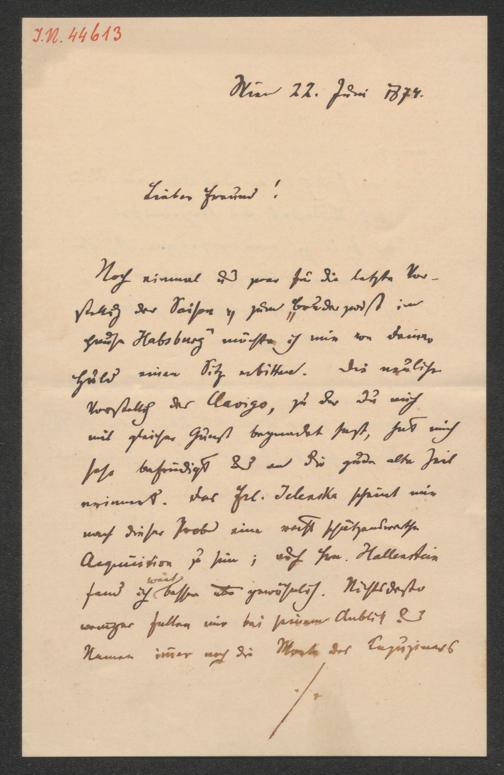 I.N. 44613
Wien 22. Juni 1874.
Lieber Freund!
Noch einmal und zwar für die letzte Vor-
stellung der Saison u zum „Bruderzwist im
Hause Habsburg" möchte ich mir von Deiner
Huld einen Sitz erbitten. Die neuliche
Vorstellung des Clavigo, zu der Du mich
mit gleicher Gunst begnadet hast, hat mich
sehr befriedigt und an die gute alte Zeit
erinnert. Das Frl. Jelenska scheint mir
nach dieser Probe eine recht schätzenswerthe
Acquisition zu sein; auch Hrn. Hallenstein
fand ich weit besser als gewöhnlich. Nichtsdesto
weniger fallen mir bei seinem Anblick und
Namen immer noch die Worte des Capuziners